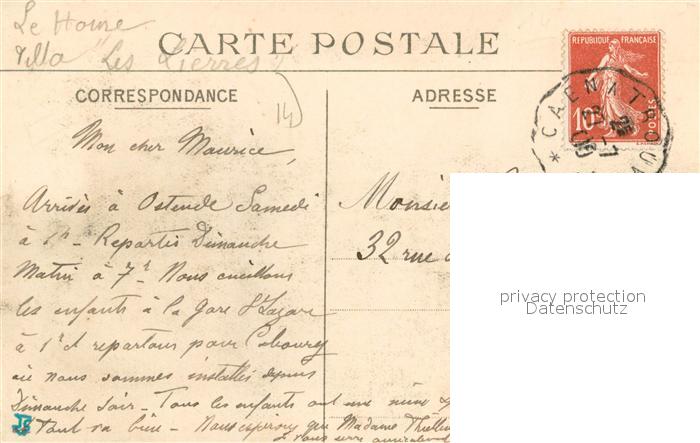 Le Home
Villa "Les Lierres"
CARTE POSTALE
CORRESPONDANCE
ADRESSE
14
REPUBLIQUE FRANÇAISE
10
POSTES
CAEN A TROU
Mon cher Maurice,
Arrivés à Ostende Samedi
à 1h - Repartis Dimanche
Matin à 7h - Nous cueillons
les enfants à la gare St Lazare
à 1h et repartons pour Cabourg
où nous sommes installés depuis
Dimanche soir - Tous les enfants ont une mine
Tout va bien - Nous espérons que Madame
Monsie
32 rue
privacy protection
Datenschutz